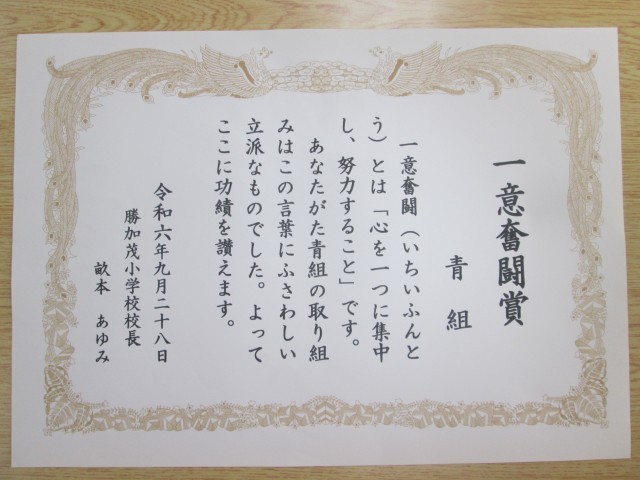 一意奮闘賞
青組
一意奮闘（いちいふんと
う）とは「心を一つに集中
し、努力すること」です。
あなたがた青組の取り組
みはこの言葉にふさわしい
立派なものでした。よって
ここに功績を讃えます。
令和六年九月二十八日
勝加茂小学校校長
畝本　あゆみ